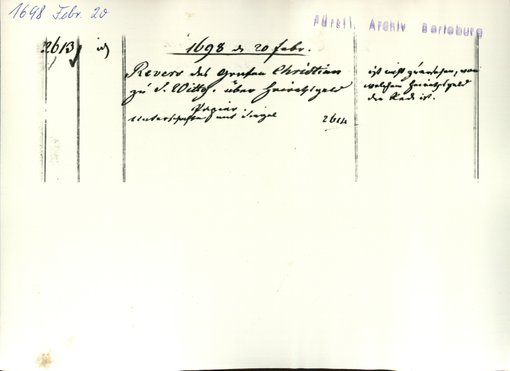 1698 Febr. 20
Fürstl. Archiv Berleburg
2613
1698 d 20 Febr.
Revers des Grafen Christian
zu S. Wittg. über Heirathsgeld
Papier.
Unterschrift und Siegel
ist nicht zu ersehen, von
welchem Heirathsgeld
die Rede ist.